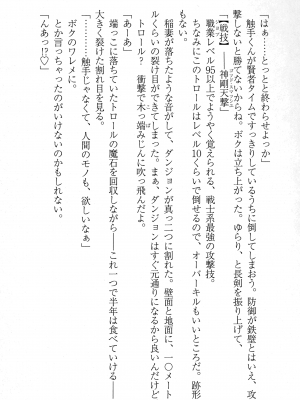 「はぁ……とっとと終わらせよっか」
触手くんが賢者タイムですっきりしているうちに倒してしまおう。防御が鉄壁とはいえ、攻
撃しないと勝てないからね。ボクは立ち上がった。ゆらり、と長剣を振り上げて、
「【戦技】神剛天撃」
職業レベル95以上でようやく覚えられる、戦士系最強の攻撃技。
ちなみにこのトロールはレベル10くらいで倒せるので、オーバーキルもいいところだ。跡形
もない。
稲妻が落ちたような音がして、ダンジョンが真っ二つに割れた。壁面と地面に、一〇メート
ルくらいの裂け目ができてしまった。まぁ、ダンジョンはすぐ元通りになるから良いんだけど
トロール？　衝撃で木っ端みじんに吹っ飛んだよ。
「あーあ」
端っこに落ちていたトロールの魔石を回収しながら――これ一つで半年は食べていける――
大きく裂けた割れ目を見る。
ボクのワレメに。
「……触手じゃなくて、人間のモノも、欲しいなぁ」
とか言っちゃったのがいけないのかもしれない。
「んあっ!?♡」